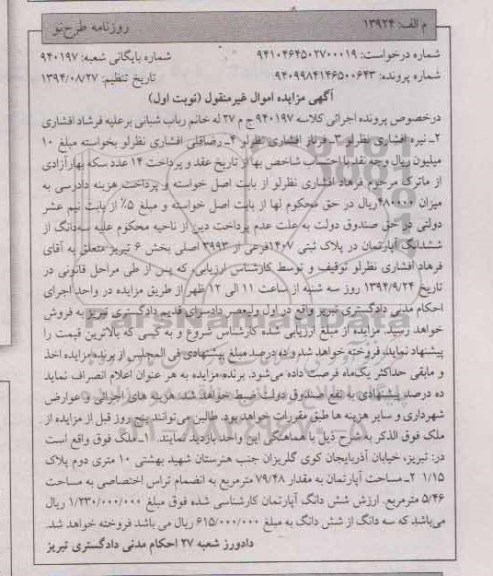 م الف: ۱۳۹۲۴
روزنامه طرح‌نو
شماره درخواست: ۹۴۱۰۴۶۴۵۰۲۷۰۰۰۱۹
شماره بایگانی شعبه: ۹۴۰۱۹۷
شماره پرونده: ۹۴۰۹۹۸۴۱۴۶۵۰۰۶۴۳
تاریخ تنظیم: ۱۳۹۴/۰۸/۲۷
آگهی مزایده اموال غیرمنقول (نوبت اول)
درخصوص پرونده اجرائی کلاسه ۹۴۰۱۹۷ ج م ۲۷ له خانم رباب شبانی برعلیه فرشاد افشاری
۲ـ نیره افشاری نظرلو ۳ـ فرناز افشاری نظرلو ۴ـ رضاقلی افشاری نظرلو بخواسته مبلغ ۱۰
میلیون ریال وجه نقد با احتساب شاخص بها از تاریخ عقد و پرداخت ۱۴ عدد سکه بهار آزادی
از ماترک مرحوم فرهاد افشاری نظرلو از بابت اصل خواسته و پرداخت هزینه دادرسی به
میزان ۴۸۰۰۰۰ ریال در حق محکوم لها از بابت اصل خواسته و مبلغ ۵٪ از بابت نیم عشر
دولتی در حق صندوق دولت به علت عدم پرداخت دین از ناحیه محکوم علیه سه‌دانگ از
ششدانگ آپارتمان در پلاک ثبتی ۱۴۰۷ فرعی از ۳۹۹۳ اصلی بخش ۶ تبریز متعلق به آقای
فرهاد افشاری نظرلو توقیف و توسط کارشناس ارزیابی، که پس از طی مراحل قانونی در
تاریخ ۱۳۹۴/۹/۲۴ روز سه شنبه از ساعت ۱۱ الی ۱۲ ظهر از طریق مزایده در واحد اجرای
احکام مدنی دادگستری تبریز واقع در اول ولیعصر دادسرای قدیم دادگستری تبریز به فروش
خواهد رسید. مزایده از مبلغ ارزیابی شده کارشناس شروع و به کسی که بالاترین قیمت را
پیشنهاد نماید، فروخته خواهد شد و ده درصد مبلغ پیشنهادی فی المجلس از برنده مزایده اخذ
و مابقی حداکثر یک‌ماه فرصت داده می‌شود. برنده مزایده به هر عنوان اعلام انصراف نماید
ده درصد پیشنهادی به نفع صندوق دولت ضبط خواهد شد. هزینه های اجرائی و عوارض
شهرداری و سایر هزینه ها طبق مقررات خواهد بود. طالبین می‌توانند پنج روز قبل از مزایده از
ملک فوق الذکر به شرح ذیل با هماهنگی این واحد بازدید نمایند. ۱ـ ملک فوق واقع است
در: تبریز، خیابان آذربایجان کوی گلریزان جنب هنرستان شهید بهشتی ۱۰ متری دوم پلاک
۱/۱۵ ۲ـ مساحت آپارتمان به مقدار ۷۹/۴۸ مترمربع به انضمام تراس اختصاصی به مساحت
۵/۴۶ مترمربع. ارزش شش دانگ آپارتمان کارشناسی شده فوق مبلغ ۱/۲۳۰/۰۰۰/۰۰۰ ریال
می‌باشد که سه دانگ از شش دانگ به مبلغ ۶۱۵/۰۰۰/۰۰۰ ریال می باشد فروخته خواهد شد.
دادورز شعبه ۲۷ احکام مدنی دادگستری تبریز